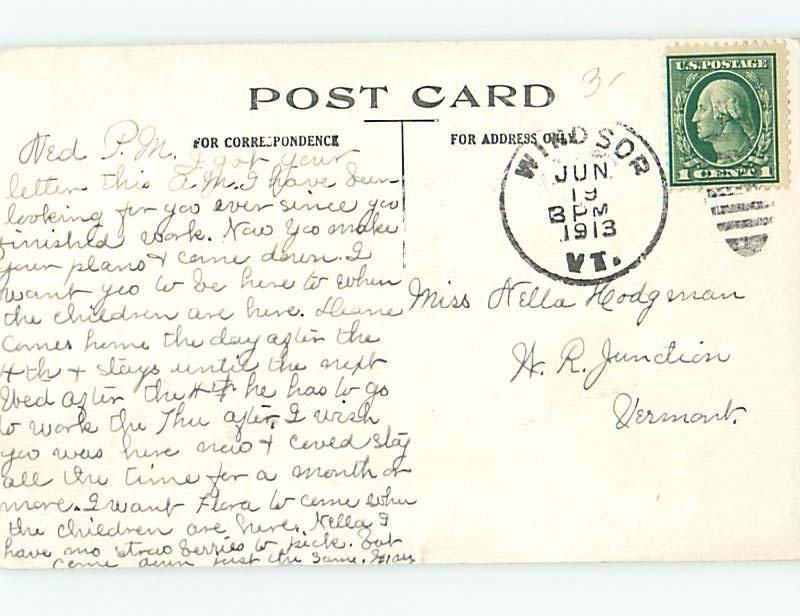 3
POST CARD
FOR CORRESPONDENCE
FOR ADDRESS ONLY
U.S. POSTAGE
1 CENT 1
WINDSOR
JUN
19
3 PM
1913
VT.
Wed P.M. I got your
letter this A.M. I have been
looking for you ever since you
finished work. Now you make
your plans + come down. I
want you to be here to when
the children are here.
comes home the day after the
4th + stays until the next
Wed after the 4th he has to go
to work the Thu after. I wish
you was here now + coved stay
all the time for a month or
more. I want Flora to come when
the children are here. Nella I
have no straw berries to pick. but
come down just the same.
Miss Nella Hodgman
W. R. Junction
Vermont.